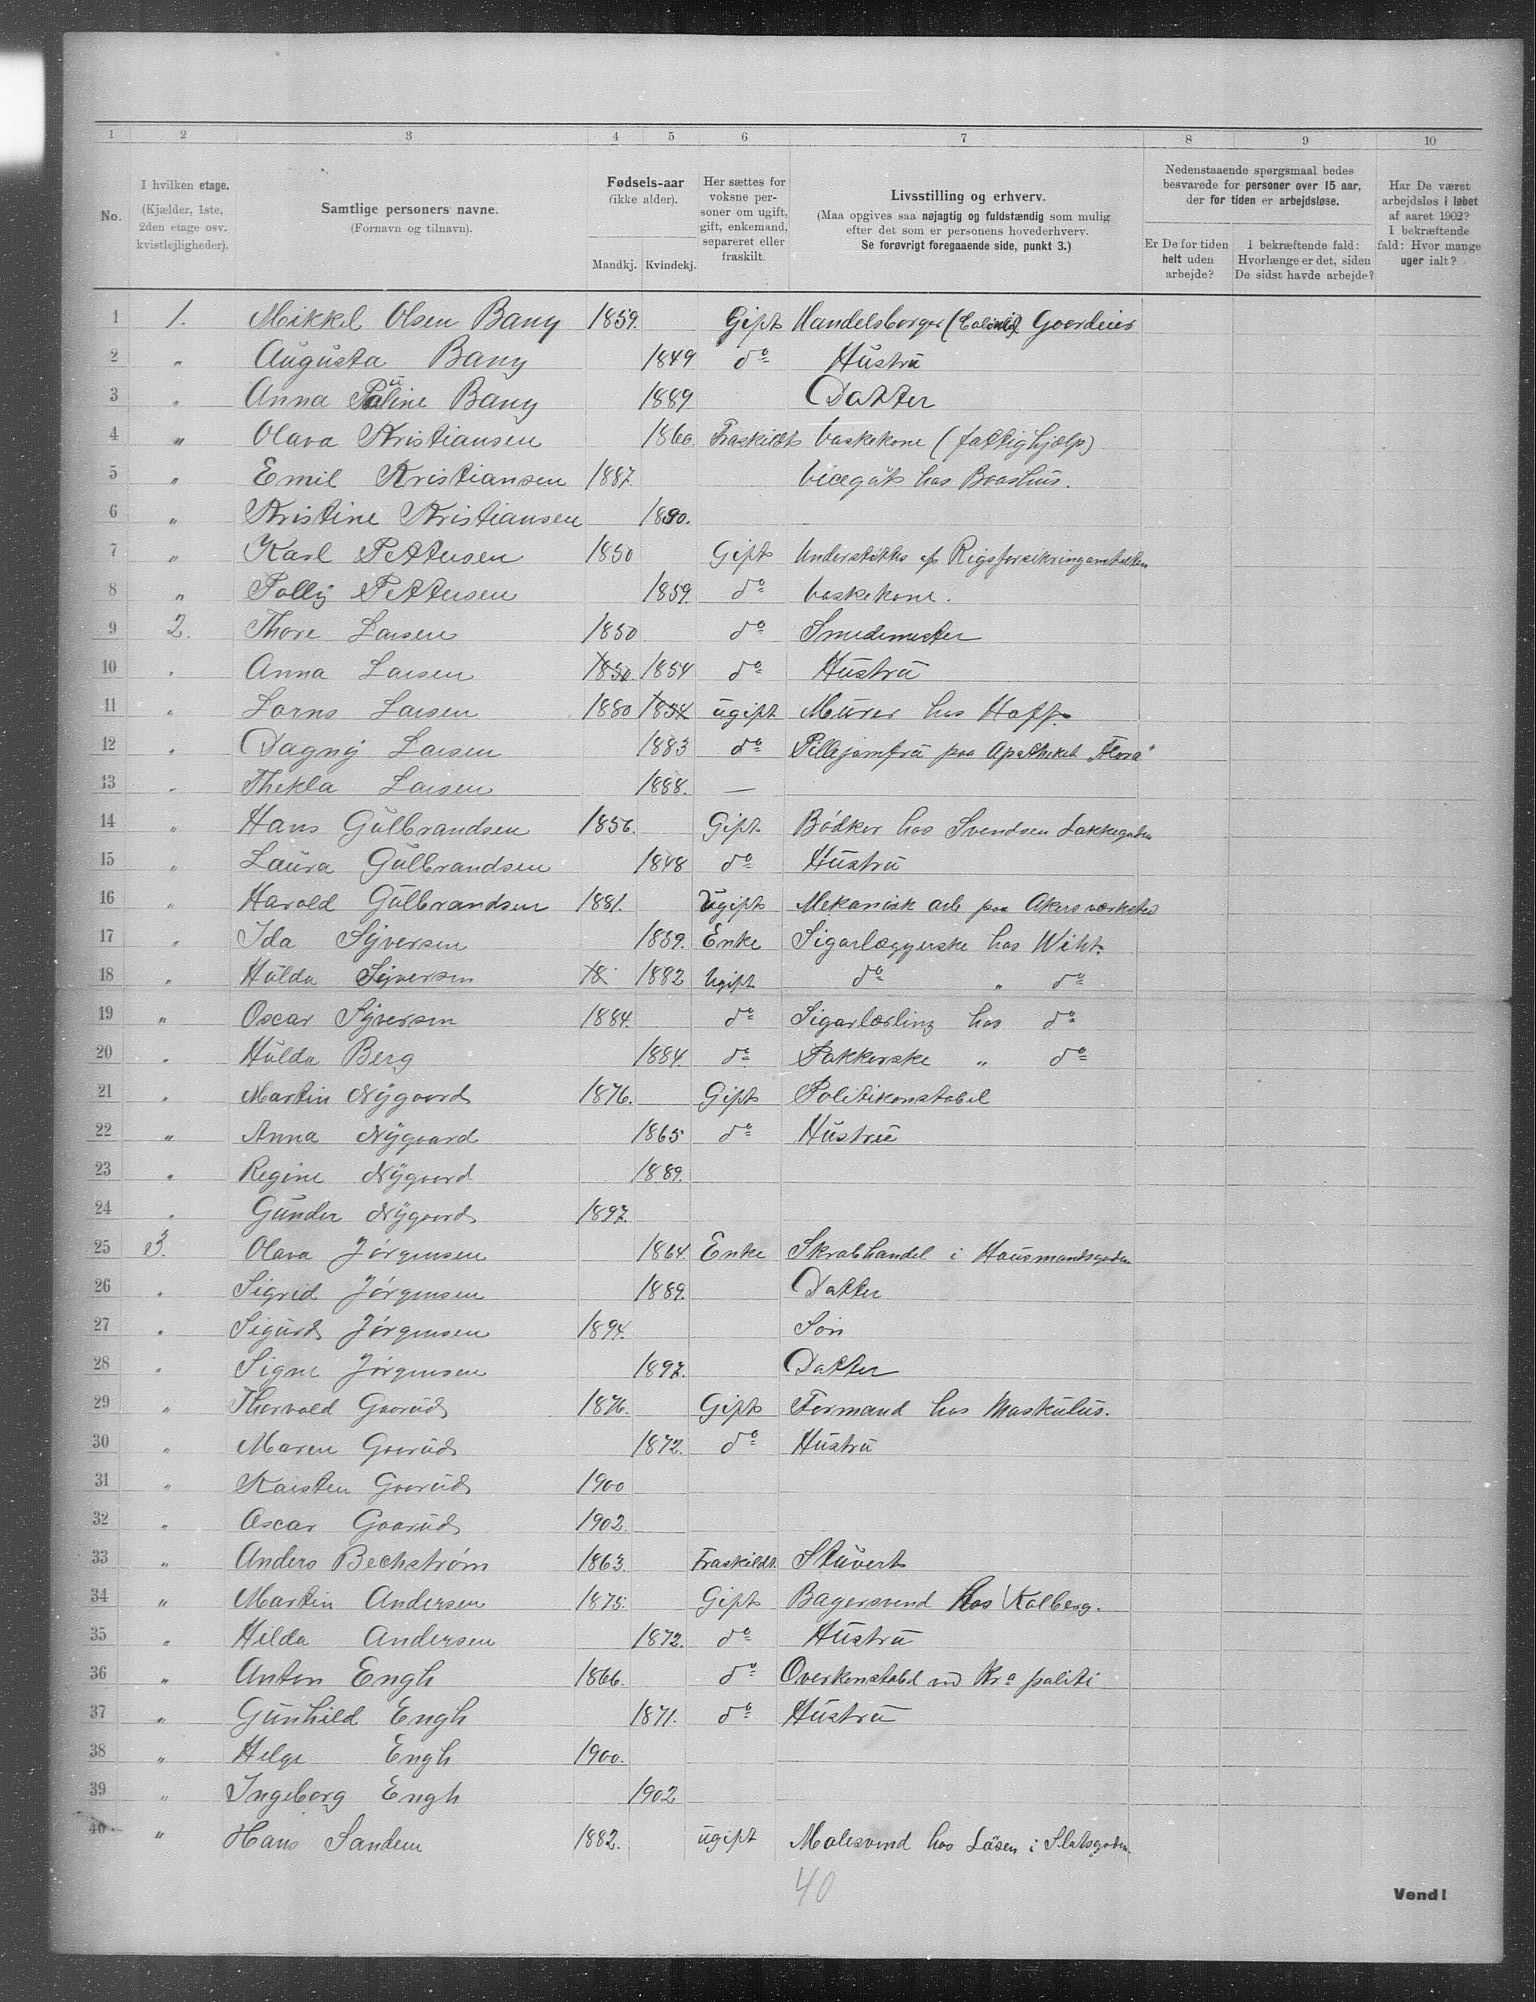 1 2 3 4 5 6 7 8 9 10
No.
I hvilken etage.
(Kjælder, 1ste,
2den etage osv.
kvistlejligheder).
Samtlige personers navne.
(Fornavn og tilnavn).
Fødsels-aar
(ikke alder).
Mandkj. Kvindekj.
Her sættes for
voksne per-
soner om ugift,
gift, enkemand,
separeret eller
fraskilt.
Livsstilling og erhverv.
(Maa opgives saa nøjagtig og fuldstændig som mulig
efter det som er personens hovederhverv.
Se forøvrigt foregaaende side, punkt 3.)
Nedenstaaende spørgsmaal bedes
besvarede for personer over 15 aar,
der for tiden er arbejdsløse.
Er De for tiden
helt uden
arbejde?
I bekræftende fald:
Hvorlænge er det, siden
De sidst havde arbejde?
Har De været
arbejdsløs i løbet
af aaret 1902?
I bekræftende
fald: Hvor mange
uger ialt?
1 1. Mikkel Olsen Bang 1859. Gift Handelsborger Gaardeier
2 " Augusta Bang 1849 do Hustru
3 " Anna Pauline Bang 1889 Datter
4 " Olava Kristiansen 1860. Fraskildt Vaskekone (fattighjælp)
5 " Emil Kristiansen 1887. Visegut hos Baashus.
6 " Kristine Kristiansen 1890.
7 " Karl Pettersen 1850 Gift Understøttes af Rigsforsikringsanstalten
8 " Polly Pettersen 1859. do Vaskekone.
9 2. Thore Larsen 1850 do Smedmester
10 " Anna Larsen 1850 1854 do Hustru
11 " Lorns Larsen 1880 1854 ugift Murer hos Hoff.
12 " Dagny Larsen 1883 do Pillejomfru paa Apotheket "Flora"
13 " Thekla Larsen 1888. —
14 " Hans Gulbrandsen 1856. Gift Bødker hos Svendsen Lakkegaten
15 " Laura Gulbrandsen 1848 do Hustru
16 " Harald Gulbrandsen 1881. Ugift Mekanisk arb paa Akers værksted
17 " Ida Syversen 1859. Enke Sigarlæggerske hos Wiht.
18 " Hulda Syversen 18 1882 Ugift do " do
19 " Oscar Syversen 1884. do Sigarlærling hos do
20 " Hulda Berg 1884. do Pakkerske " do
21 " Martin Nygaard 1876. Gift Politikonstabel
22 " Anna Nygaard 1865 do Hustru
23 " Regine Nygaard 1889.
24 " Gunder Nygaard 1897.
25 3. Olava Jørgensen 1864. Enke Skrabhandel i Hausmandsgaden
26 " Sigrid Jørgensen 1889. Datter
27 " Sigurd Jørgensen 1894. Søn
28 " Signe Jørgensen 1897. Datter
29 " Thorvald Gaarud 1876. Gift Formand hos Maskulus.
30 " Maren Gaarud 1872. do Hustru
31 " Karsten Gaarud 1900
32 " Oscar Gaarud 1902.
33 " Anders Bechstrøm 1863. Fraskildt. Stuvert
34 " Martin Andersen 1875. Gift Bagersvend hos Kolberg.
35 " Hilda Andersen 1872. do Hustru
36 " Anton Engh 1866. do Overkonstabel ved Kra politi
37 " Gunhild Engh 1871. do Hustru
38 " Helge Engh 1900.
39 " Ingeborg Engh 1902
40 " Hans Sandem 1882. ugift Malersvend hos i Slotsgaden.
40
Vend!